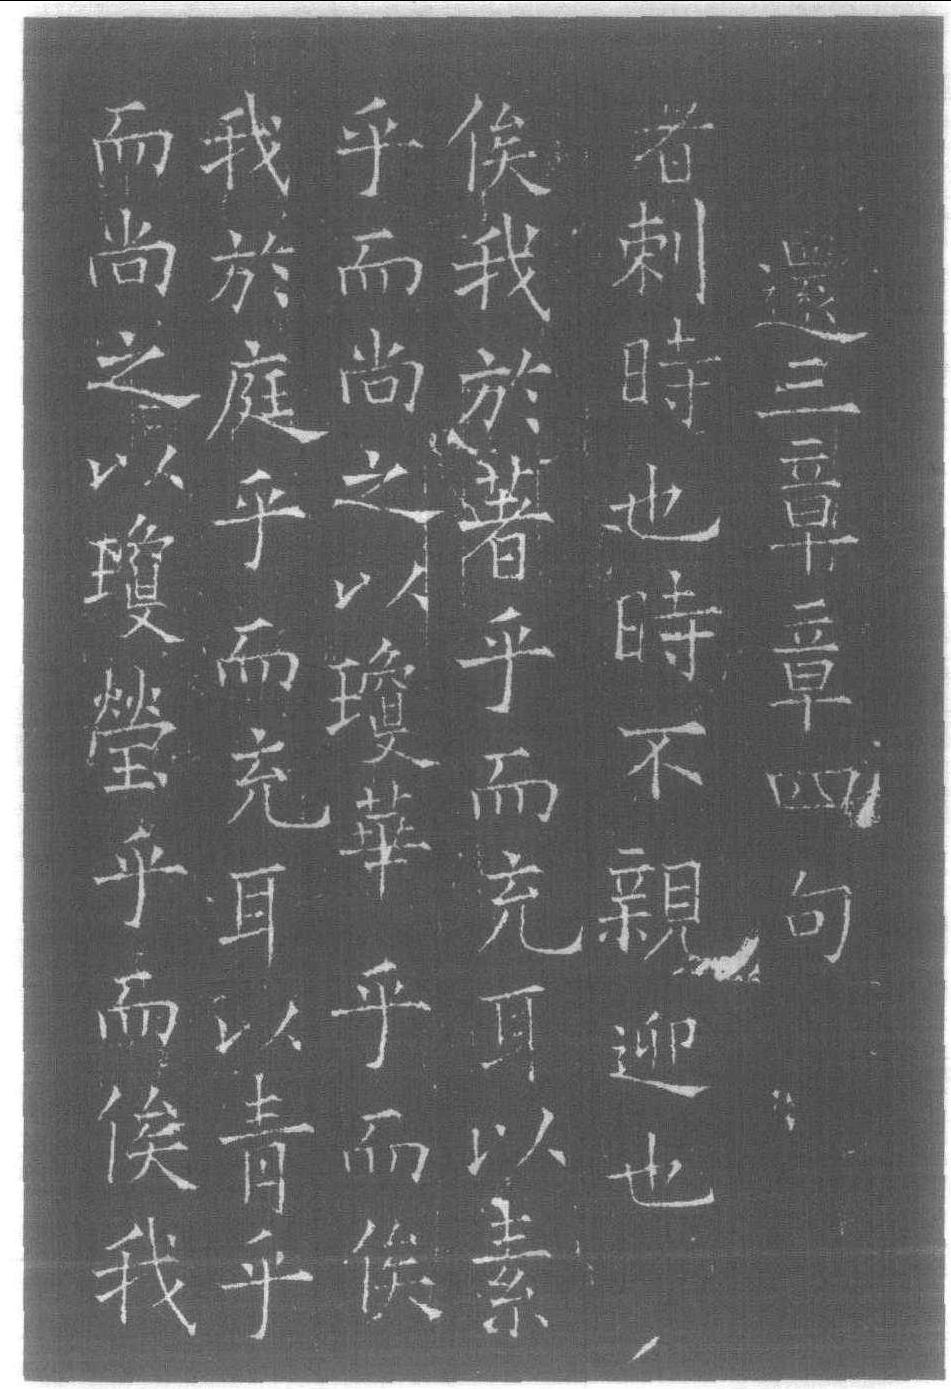 還三章章四句
著刺時也時不親迎也
俟我於著乎而充耳以素
乎而尚之以瓊華乎而俟
我於庭乎而充耳以青乎
而尚之以瓊瑩乎而俟我